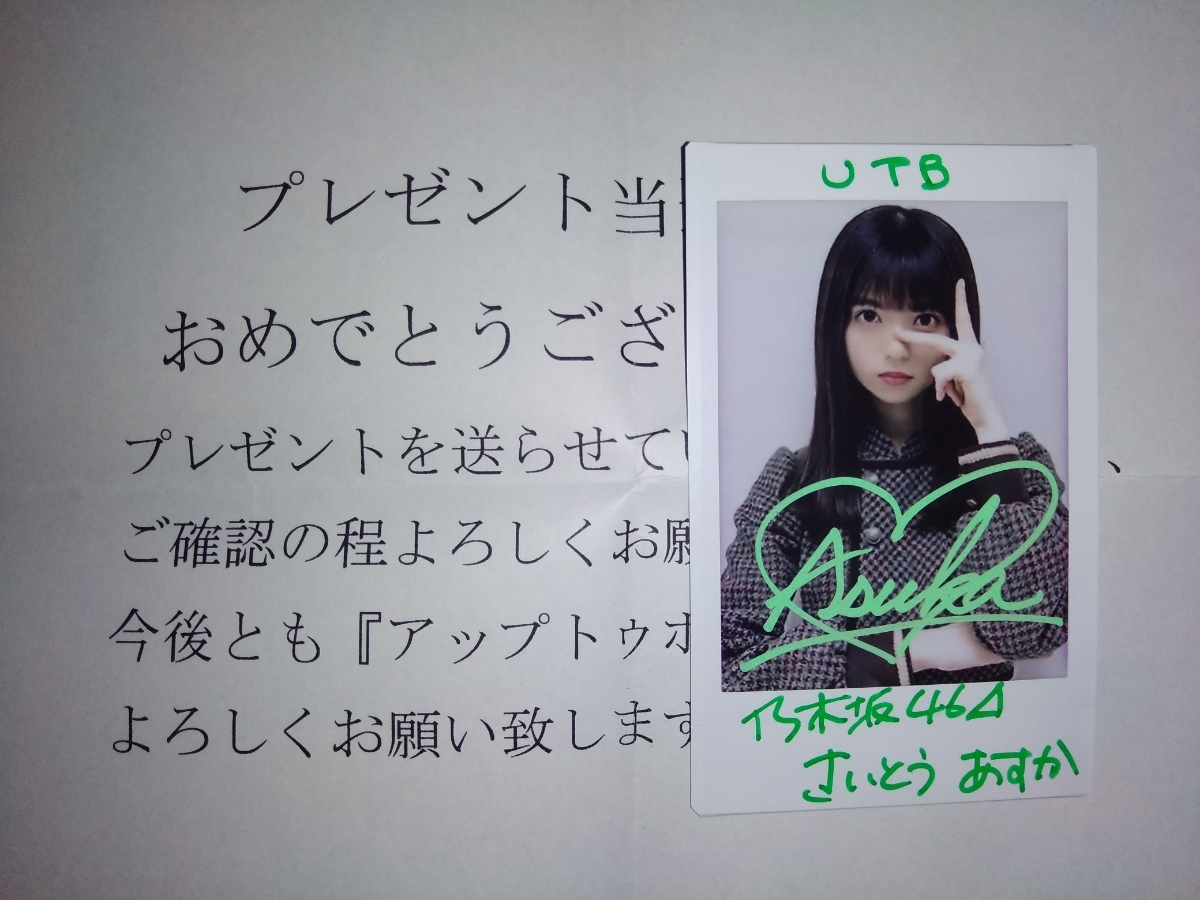 プレゼント当
おめでとうござ
プレゼントを送らせて、
ご確認の程よろしくお願
今後とも『アップトゥ
よろしくお願い致します
UTB
Asuka
乃木坂46
さいとう あすか